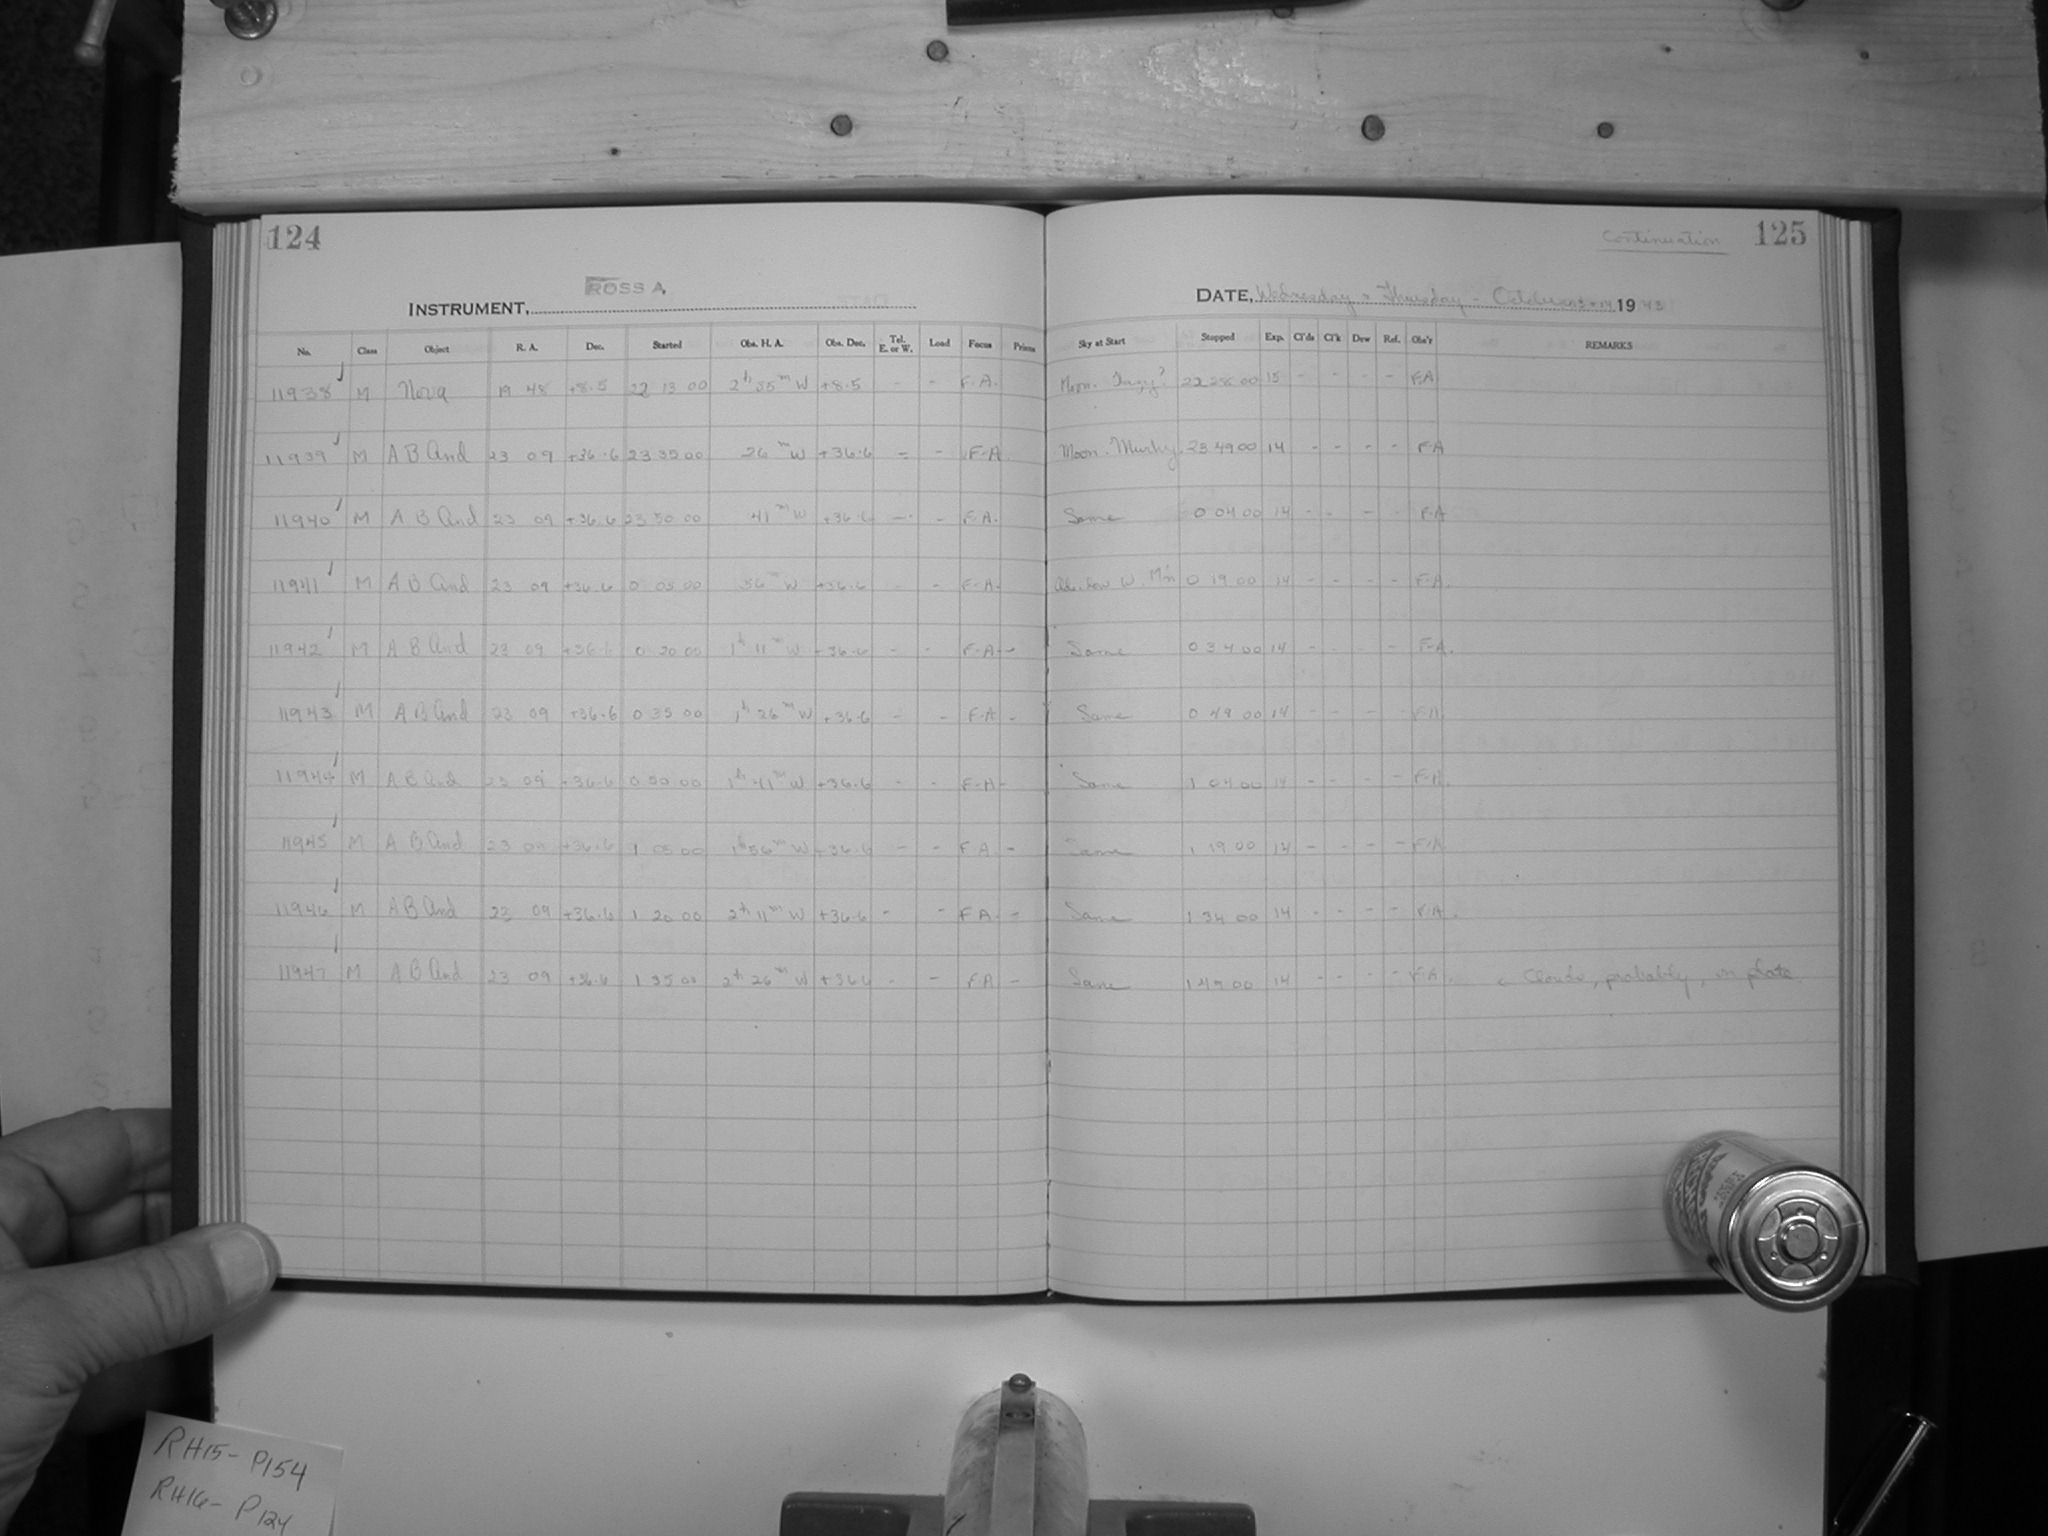 124
ROSS A.
INSTRUMENT,
No. Class Object R. A. Dec. Started Obs. H. A. Obs. Dec. Tel. E. or W. Load Focus Prisms
11938 M Nova 19 48 +8.5 22 13 00 2h 35m W +8.5 - - F.A.
11939 M A B And 23 09 +36.6 23 35 00 26m W +36.6 - - F.A.
11940 M A B And 23 09 +36.6 23 50 00 41m W +36.6 - - F.A.
11941 M A B And 23 09 +36.6 0 05 00 56m W +36.6 - - F.A.
11942 M A B And 23 09 +36.6 0 20 00 1h 11m W +36.6 - - F.A. -
11943 M A B And 23 09 +36.6 0 35 00 1h 26m W +36.6 - - F.A -
11944 M A B And 23 09 +36.6 0 50 00 1h 41m W +36.6 - - F.A -
11945 M A B And 23 09 +36.6 1 05 00 1h 56m W +36.6 - - F A -
11946 M A B And 23 09 +36.6 1 20 00 2h 11m W +36.6 - - F A -
11947 M A B And 23 09 +36.6 1 35 00 2h 26m W +36.6 - - F.A -
Continuation 125
DATE, Wednesday & Thursday - 1943
Sky at Start Stopped Exp. Cl'ds Cl'k Dew Ref. Obs'r REMARKS
Moon. 22 28 00 15 - - - - F.A
Moon. Murky 23 49 00 14 - - - - F.A
Same 0 04 00 14 - - - - F.A
W. M'n 0 19 00 14 - - - - F.A.
Same 0 34 00 14 - - - - F.A.
Same 0 49 00 14 - - - - F.A.
Same 1 04 00 14 - - - - F.A.
Same 1 19 00 14 - - - - F.A
Same 1 34 00 14 - - - - F.A.
Same 1 49 00 14 - - - - F.A. Clouds, probably, on plate.
RH15- P154
RH16- P124